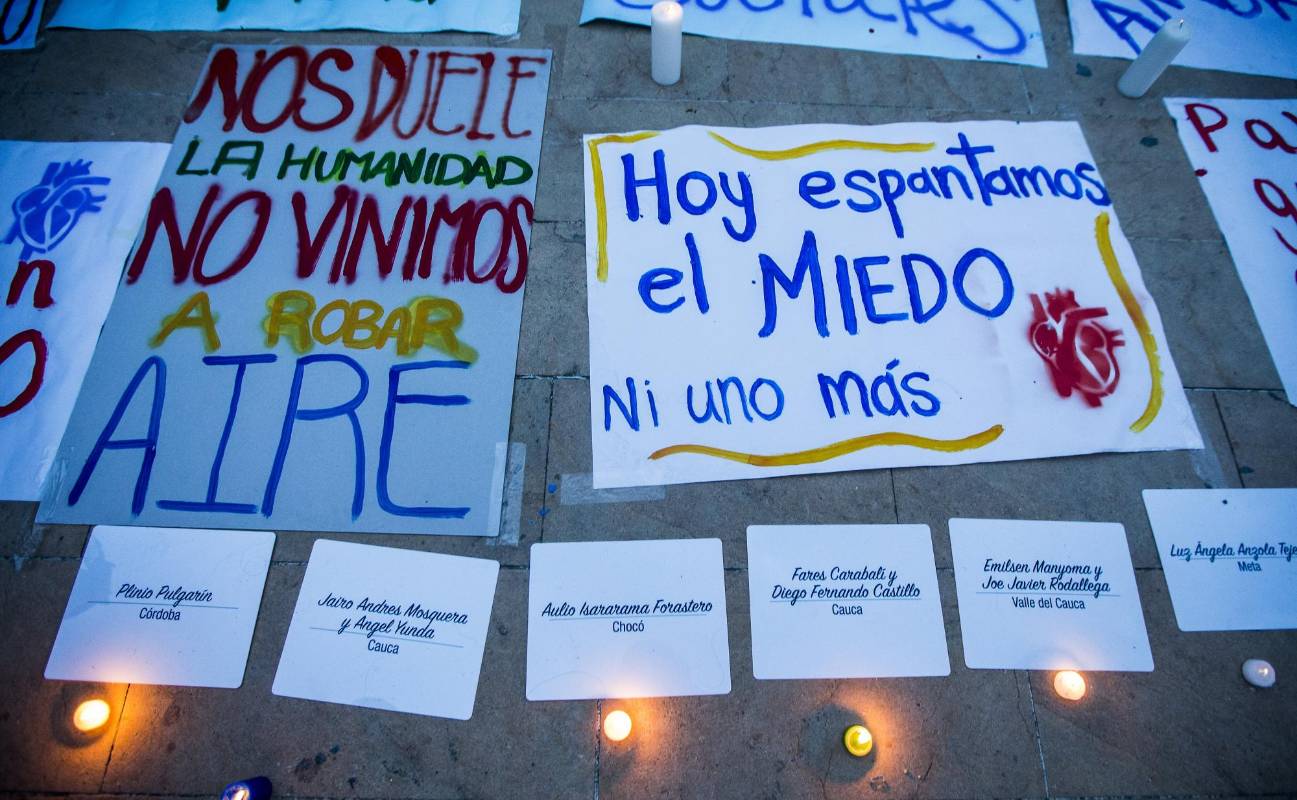 NOS DUELE
LA HUMANIDAD
NO VINIMOS
A ROBAR
AIRE
Hoy espantamos
el MIEDO
Ni uno más
Plinio Pulgarín
Córdoba
Jairo Andres Mosquera
y Angel Yunda
Cauca
Aulio Isararama Forastero
Chocó
Fares Carabalí y
Diego Fernando Castillo
Cauca
Emilsen Manyoma y
Joe Javier Rodallega
Valle del Cauca
Luz Ángela Anzola Teje
Meta